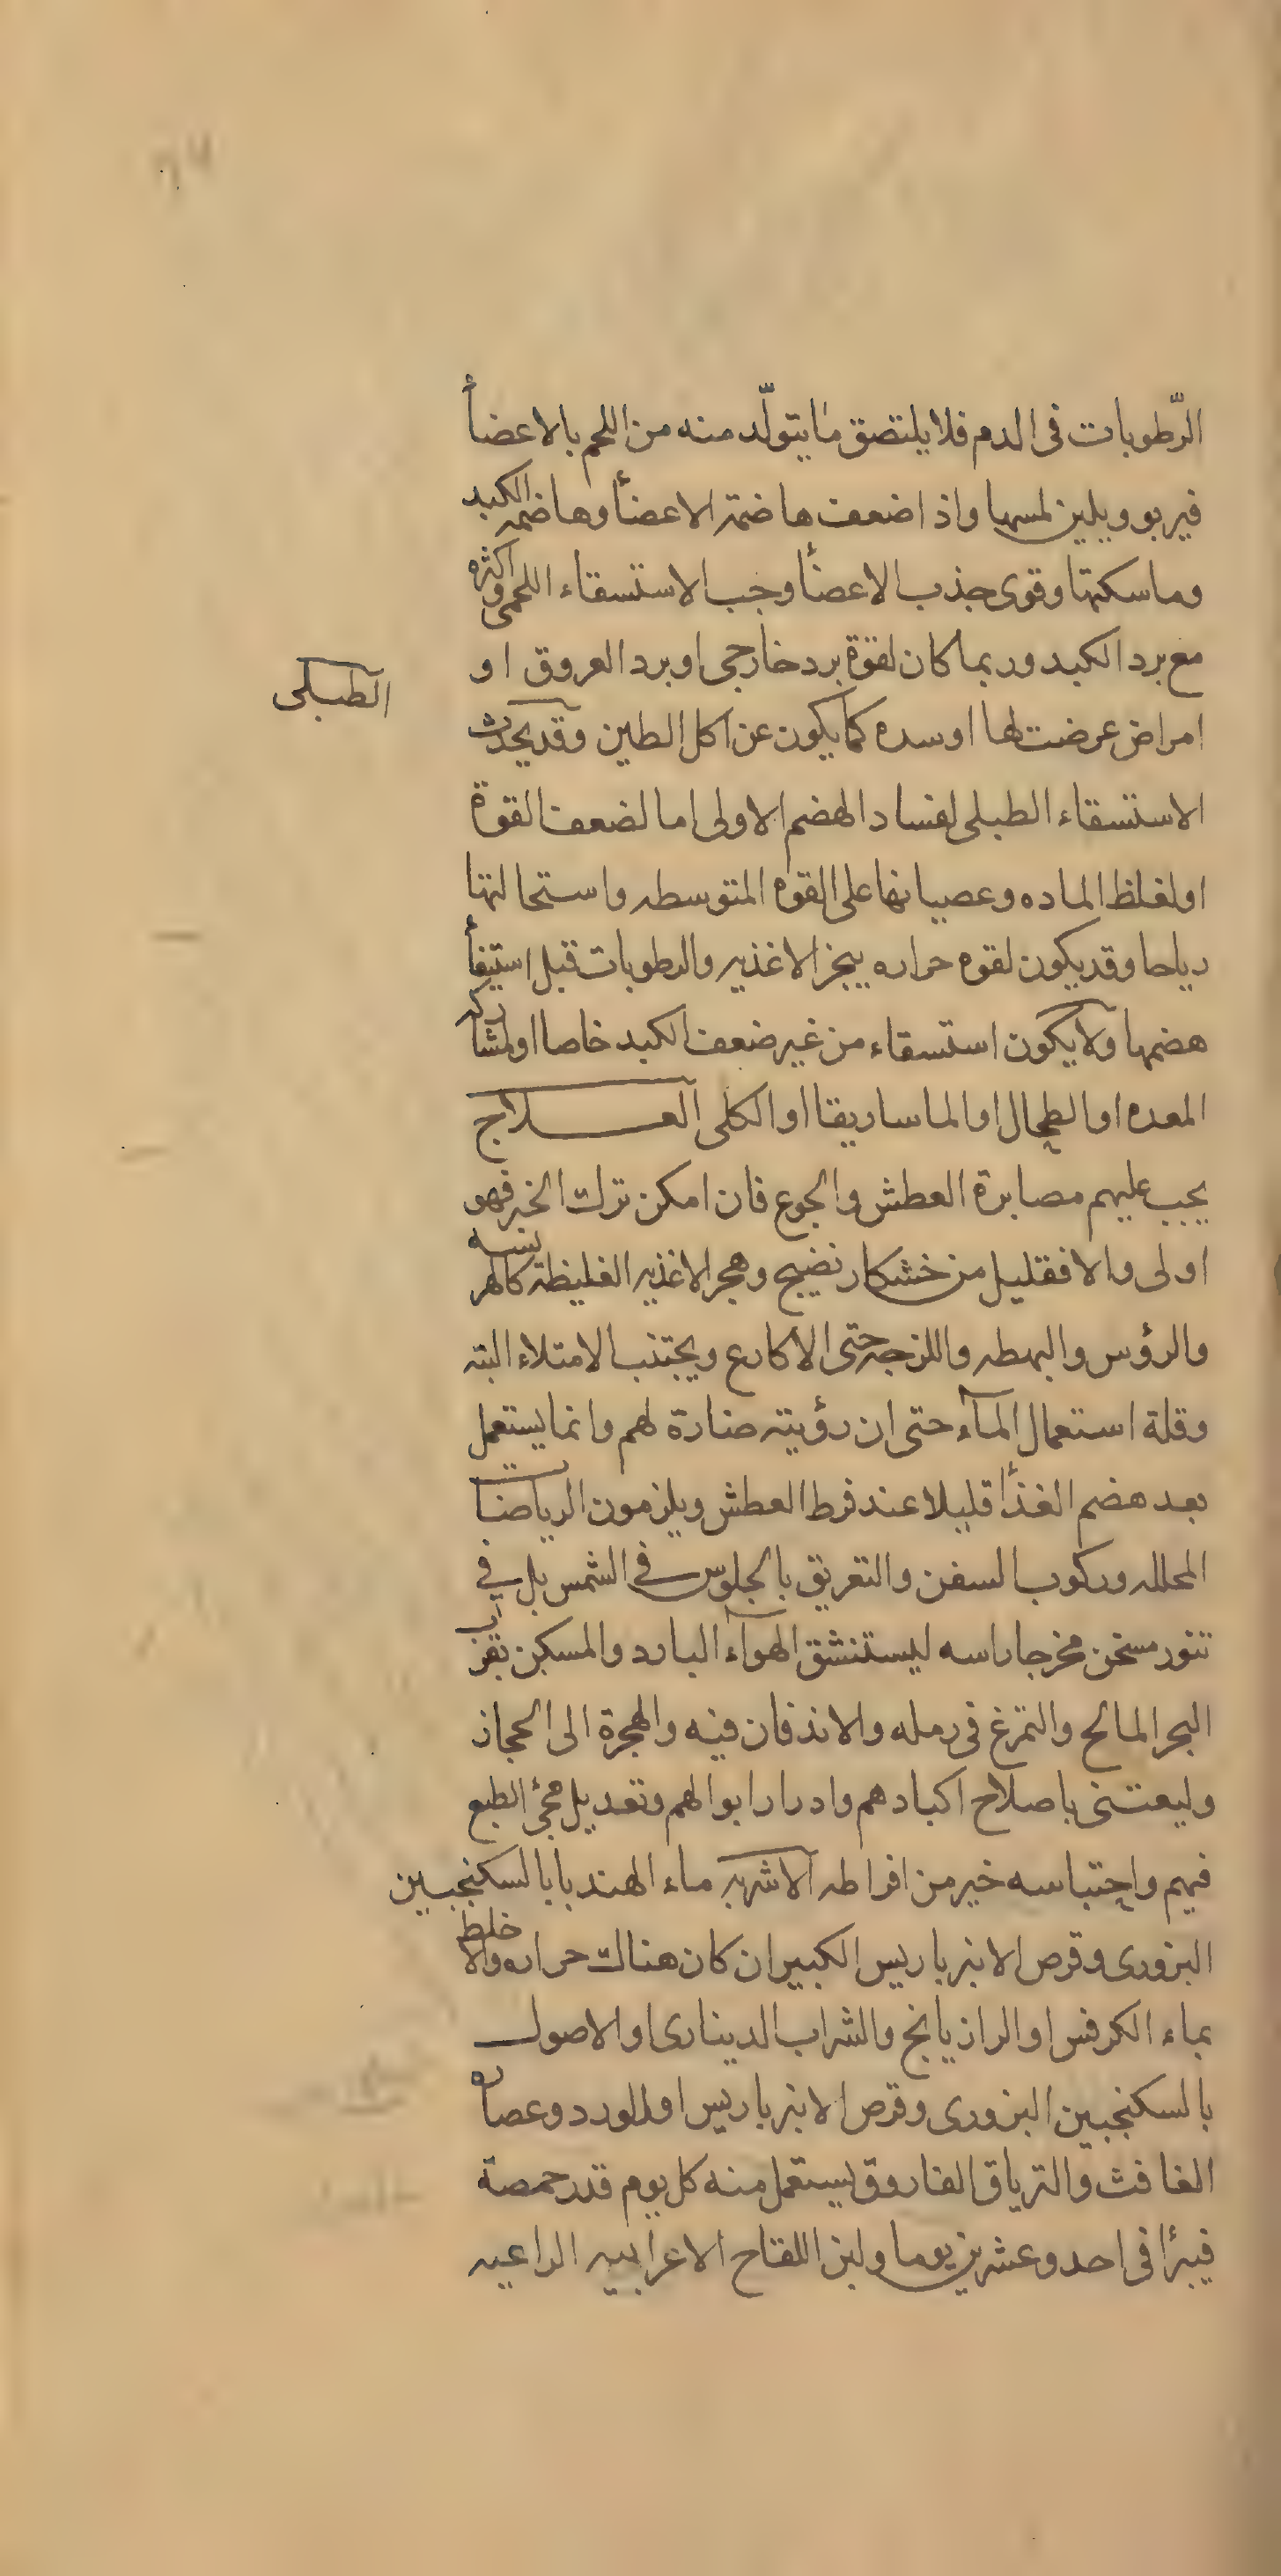 الرّطوبات فى الدم فلا يلتصق ما يتولّد منه من اللحم بالاعضأ
فيربو ويلين لمسها واذا ضعف هاضمة الاعضأ وهاضمه الكبد
وماسكتها وقوى جذب الاعضأ وجب الاستسقاء اللحمى واكثره
مع برد الكبد وربما كان لقوة برد خارجى او برد العروق او
الطبلى
امراض عرضت لها او سده كما يكون عن اكل الطين وقد يحدث
الاستسقاء الطبلى لفساد الهضم الاولى اما لضعف القوة
او لغلظ الماده وعصيانها على القوه المتوسطه واستحالتها
رياحا وقد يكون لقوه حراره يبخر الاغذيه والرطوبات قبل استيفأ
هضمها ولا يكون استسقاء من غير ضعف الكبد خاصا او لمشاركه
المعده او الطحال او الماساريقا او الكلى العـــلاج
يجب عليهم مصابرة العطش والجوع فان امكن ترك الخبز فهو
اولى والا فقليل من خشكار نضيج وهجر الاغذيه الغليظه كالهريسه
والرؤس والبهطه واللزجه حتى الاكارع ويجتنب الامتلاء البته
وقلة استعمال المآء حتى ان رؤيته ضارة لهم وانما يستعمل
بعد هضم الغذأ قليلا عند فرط العطش ويلزمون الرياضات
المحلله وركوب السفن والتعريق بالجلوس فى الشمس بل فى
تنور مسخن مخرجا راسه ليستنشق الهوآء البارد والمسكن بقرب
البحر المالح والتمرغ فى رمله والاندفان فيه والهجرة الى الحجاز
وليعتنى باصلاح اكبادهم وادرار ابوالهم وتعديل مجئ الطبع
فيهم واحتباسه خير من افراطه الاشربه ماء الهندبا بالسكنجبين
البزورى وقرص الانبرباريس الكبير ان كان هناك حراره والا خلط
بماء الكرفس او الرازيانج والشراب الدينارى او الاصول
بالسكنجبين البزورى وقرص الانبرباريس او الورد وعصاره
الغافث والترياق الفاروق يستعمل منه كل يوم قدر حمصة
فيبرأ فى احد وعشرين يوما ولبن اللقاح الاعرابيه الراعيه